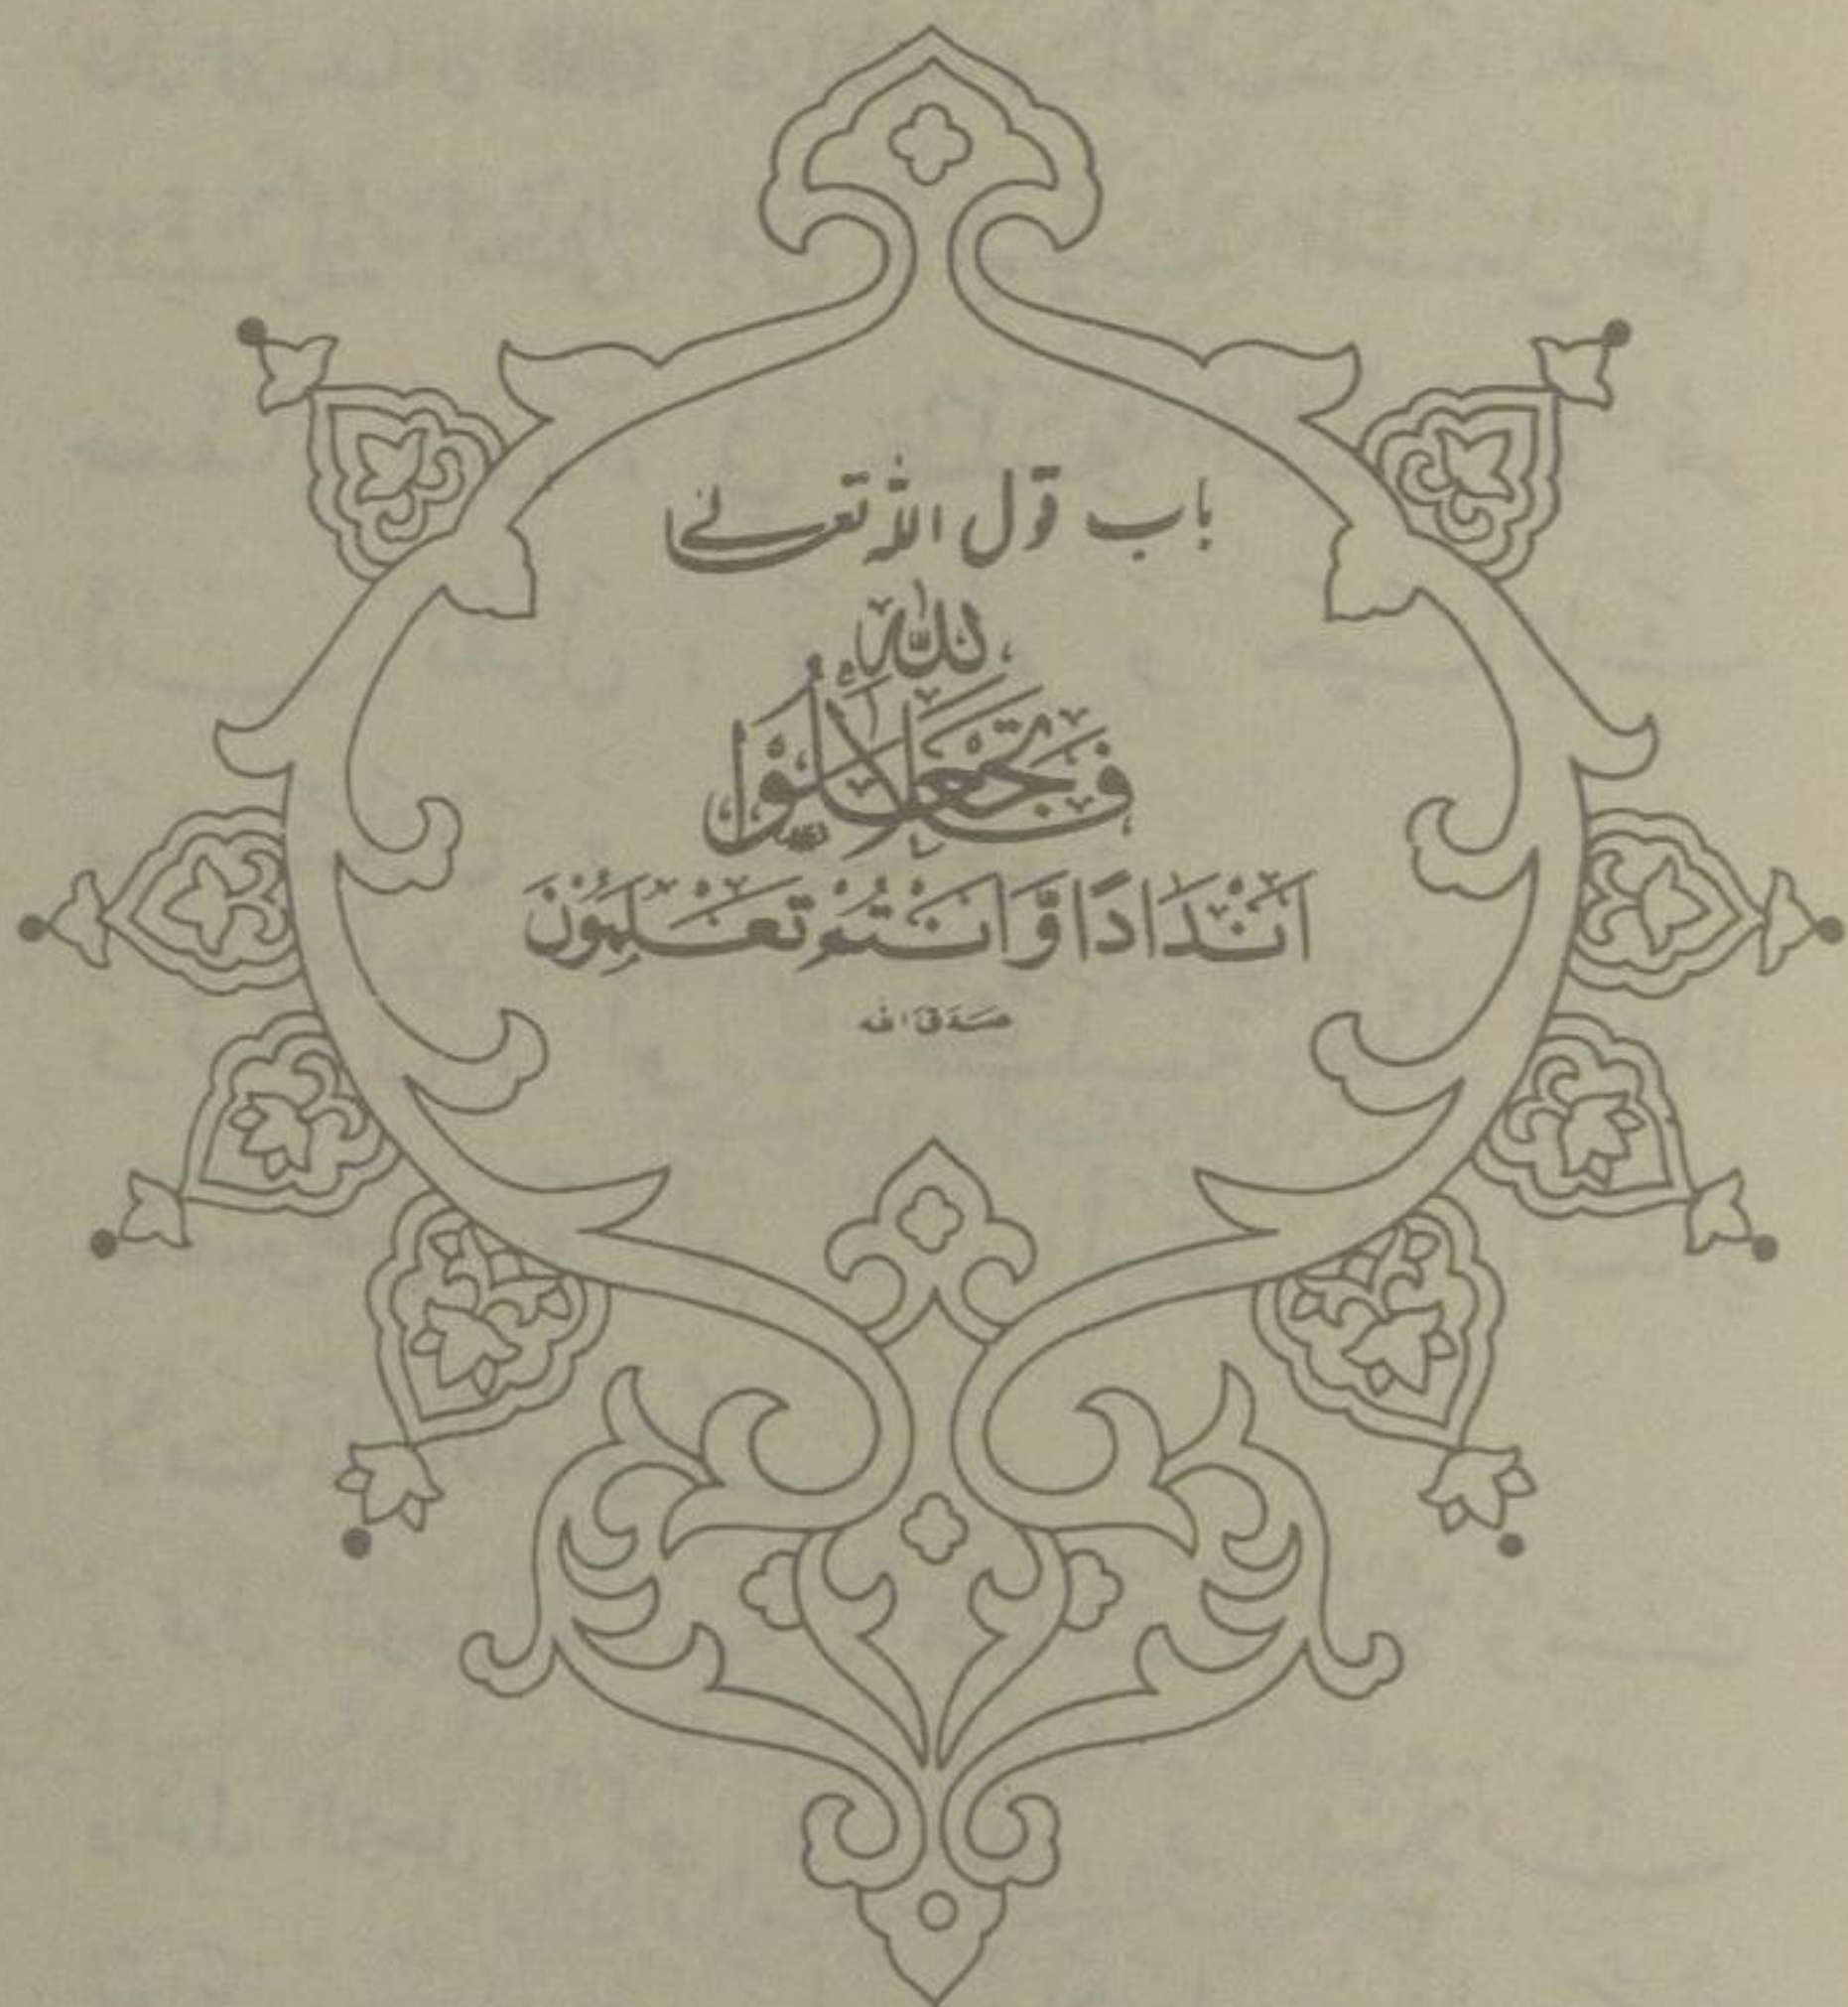 باب قول الله تعالى
فَلَا تَجْعَلُوْا لِلّٰهِ
اَنْدَادًا وَّاَنْتُمْ تَعْلَمُوْنَ
صدق الله